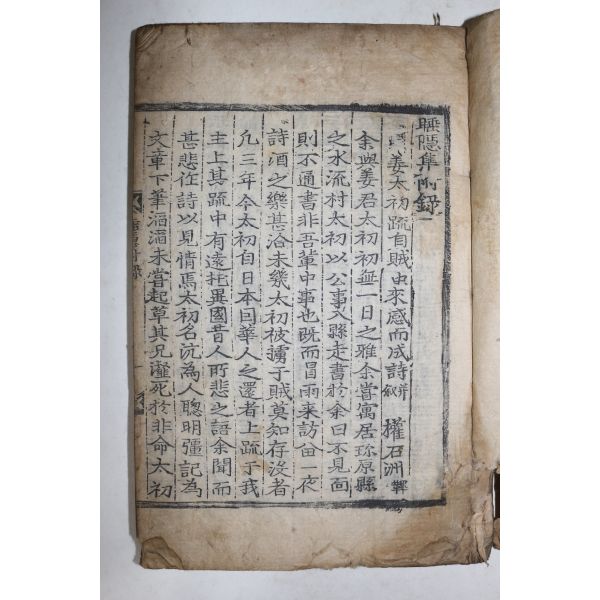 睡隱集附錄
姜太初疏自賊中來感而成詩幷敘 權石洲韠
余與姜君太初無一日之雅余嘗寓居珎原縣
之水流村太初以公事入縣走書於余曰不見面
則不通書非吾輩中事也既而冒雨来訪留一夜
詩酒之樂甚洽未幾太初被擄于賊莫知存沒者
凢三年今太初自日本因華人之還者上疏于我
主上其疏中有遠托異國昔人所悲之語余聞而
甚悲作詩以見情焉太初名沆為人聰明彊記為
文章下筆滔滔未嘗起草其兄濬死於非命太初